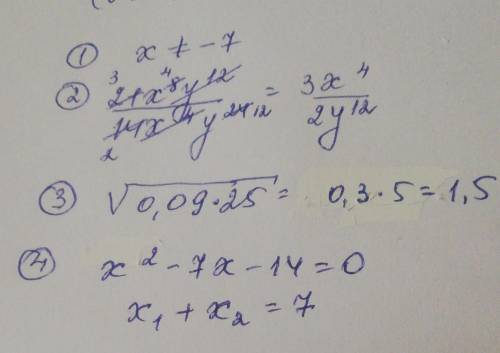 ① x ≠ -7
② 21x⁸y¹²/14x⁴y²⁴ = 3x⁴/2y¹²
③ √0,09·25 = 0,3·5 = 1,5
④ x² - 7x - 14 = 0
x₁ + x₂ = 7